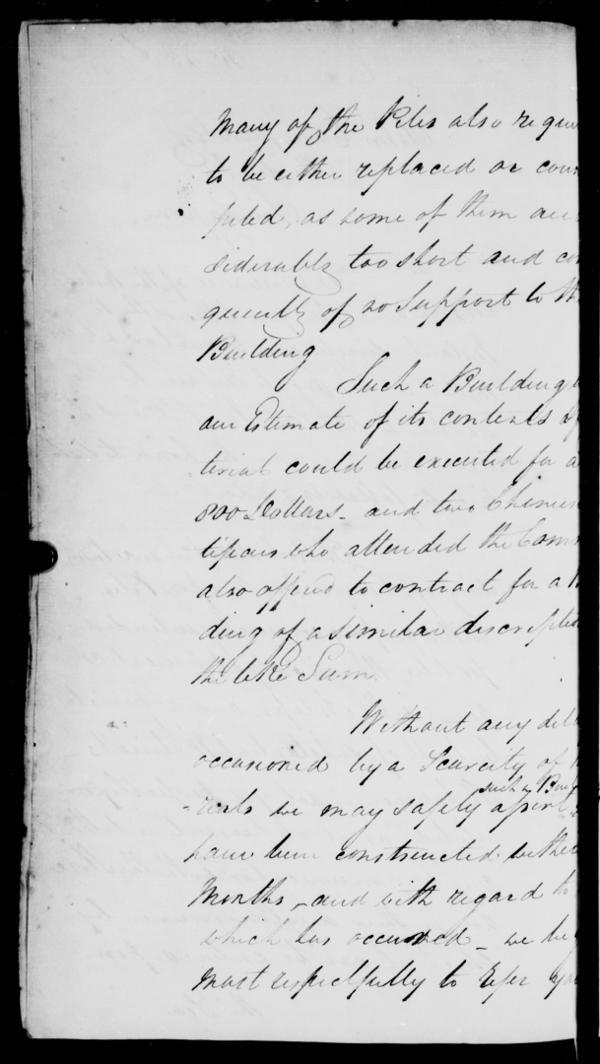 Many of the Piles also requi
to be either replaced or coun
pated, as some of them are
siderably too short and co
quently of no Support to th
Building
Such a Building b
our Estimate of its contents
terial could be executed for a
800 Dollars - and two Chines
tificers who attended the Com
also offered to contract for a B
ding of a similar descriptio
the like Sum
Without any del
occasioned by a Scarcity of
such a Bui
-rials we may safely assert
have been constructed within
Months - and with regard to
which has occurred - we beg
most respectfully to refer yo